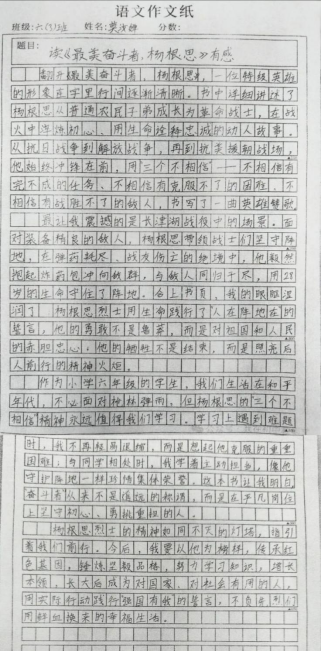 语文作文纸
班级:六(1)班 姓名: 分数:
题目:
读《最美奋斗者,杨根思》有感
翻开最美奋斗者,杨根思,一位特级英雄
的形象在字里行间逐渐清晰。书中详细讲述了
杨根思从普通农民子弟成长为革命战士,在战
火中淬炼初心、用生命诠释忠诚的动人故事。
从抗日战争到解放战争,再到抗美援朝战场,
他始终冲锋在前,用"三个不相信"——不相信有
完不成的任务、不相信有克服不了的困难、不
相信有战胜不了的敌人,书写了一曲英雄赞歌
最让我震撼的是长津湖战役中的场景。面
对装备精良的敌人,杨根思带领战士们坚守阵
地,在弹药耗尽、战友伤亡的绝境中,他毅然
抱起炸药包冲向敌群,与敌人同归于尽,用28
岁的生命守住了阵地。合上书页,我的眼眶湿
润了 杨根思烈士用生命践行了"人在阵地在的
誓言,他的勇敢不是鲁莽,而是对祖国和人民
的赤胆忠心,他的牺牲不是结束,而是照亮后
人前行的精神火炬。
作为小学六年级的学生,我们生活在和平
年代,不必面对枪林弹雨,但杨根思的"三个不
相信"精神永远值得我们学习。学习上遇到难题
时,我不再轻易退缩,而是想起他克服的重重
困难;与同学相处时,我学着主动担当,像他
守护阵地一样珍惜集体荣誉,这本书让我明白
奋斗者从来不是遥远的称谓,而是在平凡岗位
上坚守初心、勇挑重担的人。
杨根思烈士的精神如同不灭的灯塔,指引
着我们前行。今后,我要以他为榜样,传承红
色基因,锤炼坚毅品格,努力学习知识,增长
本领,长大后成为对国家、对社会有用的人,
用实际行动践行"强国有我的誓言,不负先烈们
用鲜血换来的幸福生活。